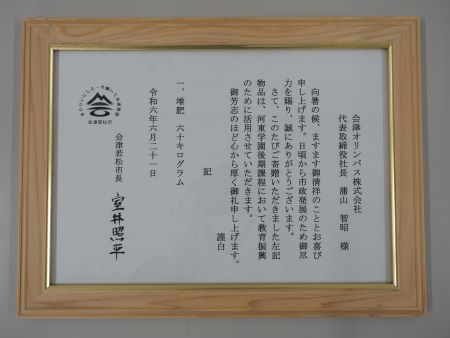 会津オリンパス株式会社
代表取締役社長 蒲山 智昭 様
向暑の候、ますます御清祥のこととお喜び
申し上げます。日頃から市政発展のため御尽
力を賜り、誠にありがとうございます。
さて、このたびご寄贈いただきました左記
物品は、河東学園後期課程において教育振興
のために活用させていただきます。
御芳志のほど心から厚く御礼申し上げます。
謹白
記
一、堆肥 六十キログラム
令和六年六月二十一日
会津若松市長 室井照平
会津若松市